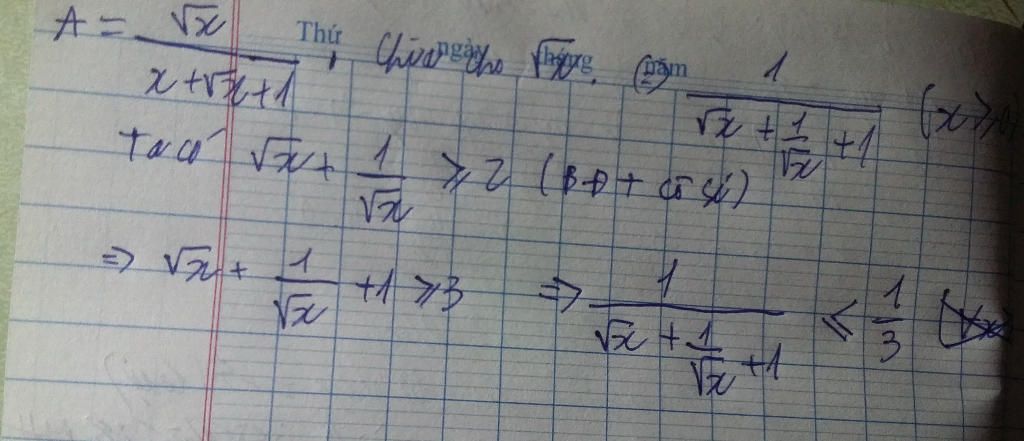 A = √x / (x + √x + 1) , Chia cho √x. (=) 1 / (√x + 1/√x + 1) (x ≥ 0)
Thứ ngày tháng năm
Ta có √x + 1/√x ≥ 2 (BĐT cô si)
=> √x + 1/√x + 1 ≥ 3 => 1 / (√x + 1/√x + 1) ≤ 1/3